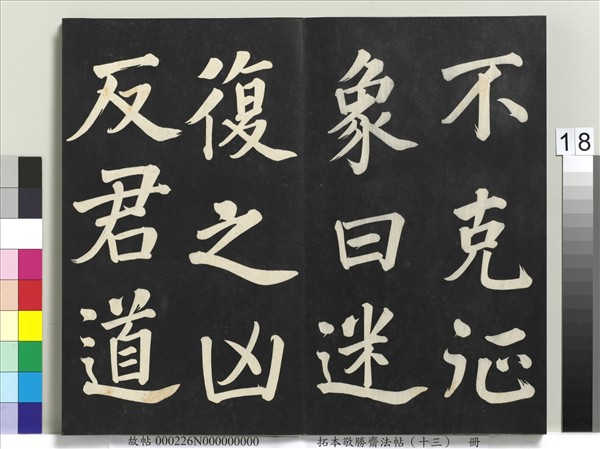 不克征
象曰迷
復之凶
反君道
18
故帖 000226N000000000 拓本敬勝齋法帖（十三） 冊